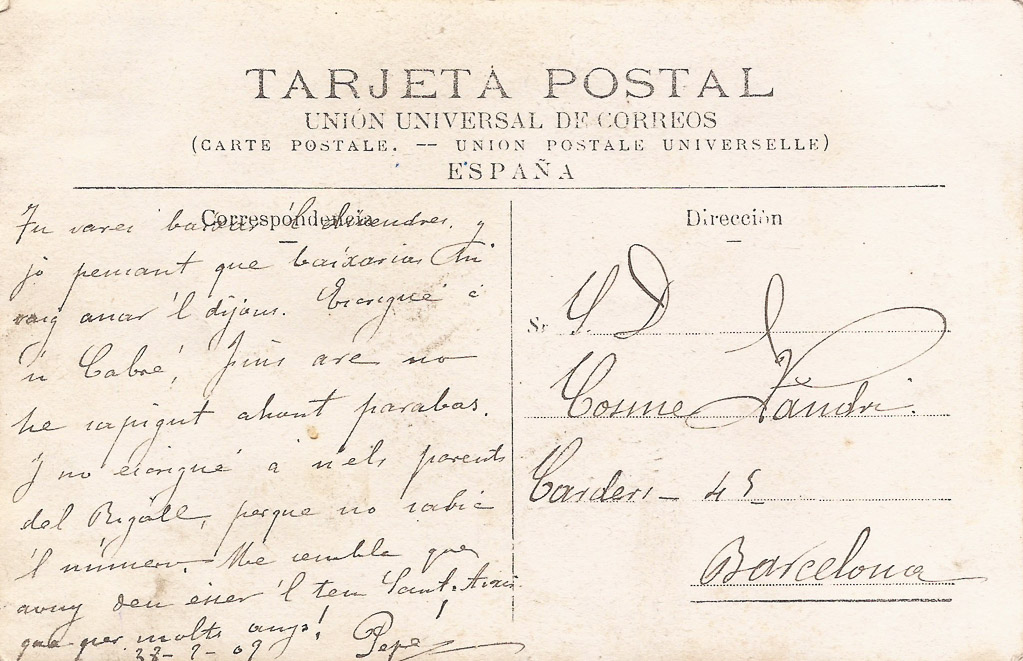 TARJETA POSTAL
UNIÓN UNIVERSAL DE CORREOS
(CARTE POSTALE. -- UNION POSTALE UNIVERSELLE)
ESPAÑA
Correspóndencia
Tu varei baixar l' divendres, y
jo pensant que baixarias tu
vaig anar 'l dijous. Escrigué á
'n Cabré, fins are no
he sapigut ahont parabas.
J no escrigué á n'els parents
del Rigall, perque no sabia
'l número. Me sembla que
avuy deu esser 'l teu Sant. Aixis
que per molts anys! Pepé
-9-09
Dirección
Sr. S. D.
Cosme Vandri.
Carders - 45
Barcelona